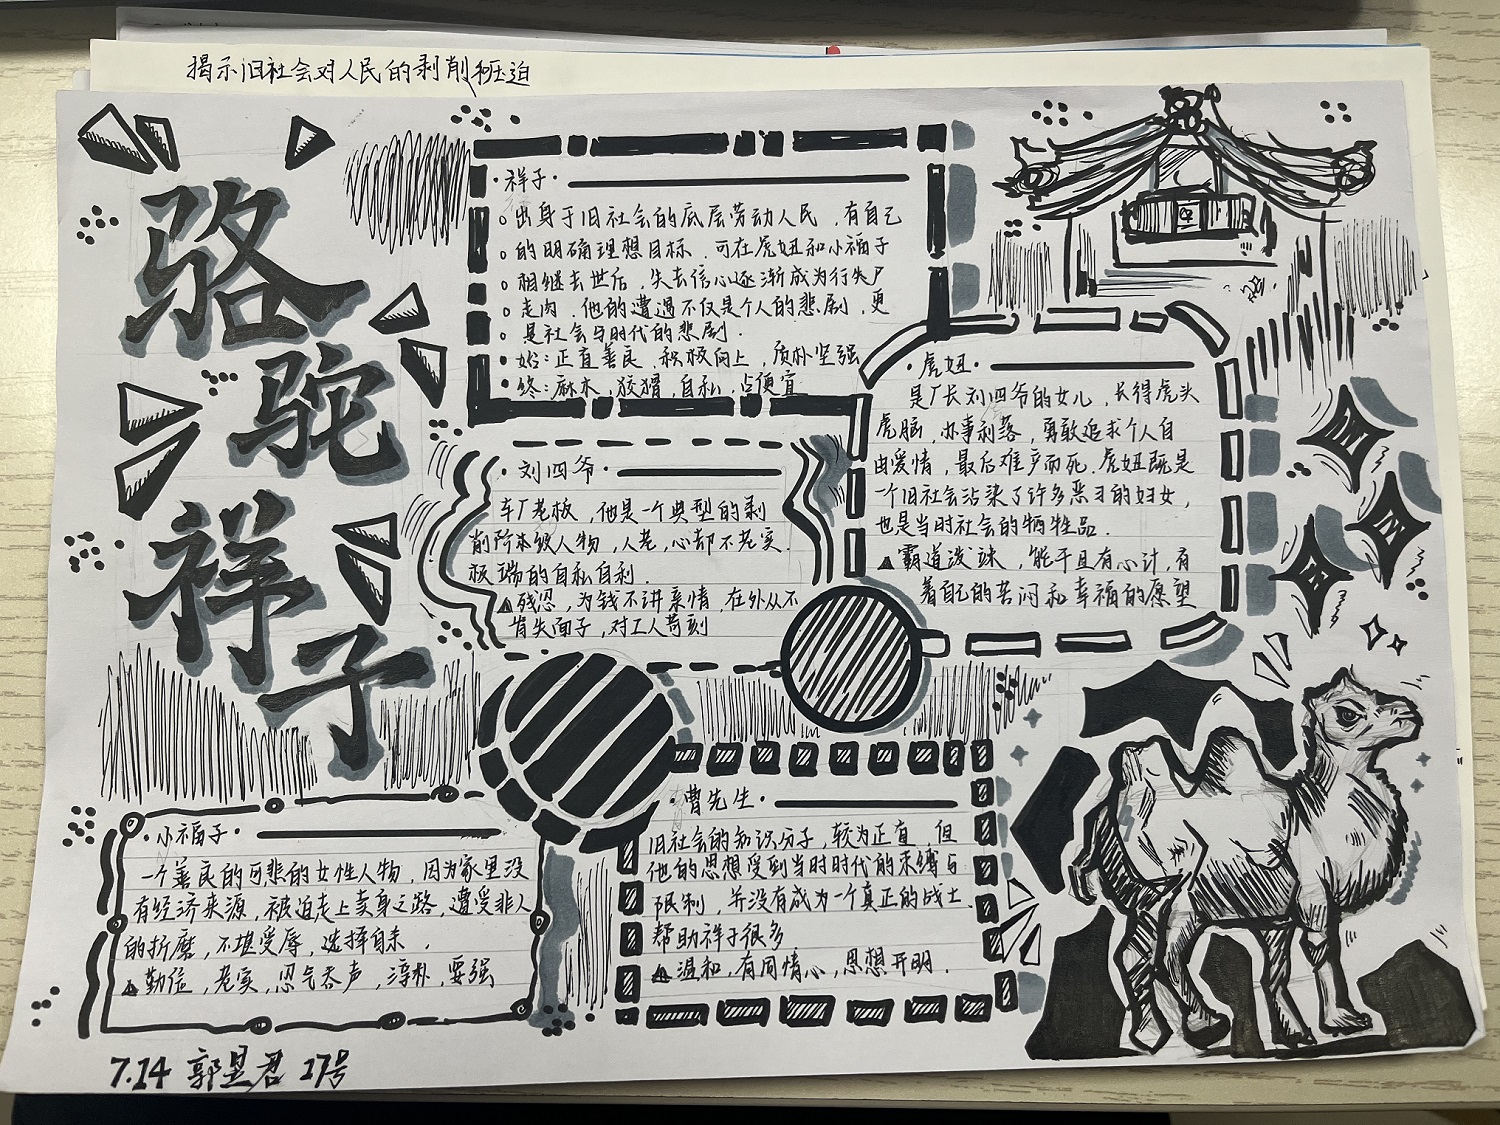 揭示旧社会对人民的剥削和压迫
骆
驼
祥
子
·祥子·
出身于旧社会的底层劳动人民，有自己
的明确理想目标，可在虎妞和小福子
相继去世后，失去信心逐渐成为行尸
走肉，他的遭遇不仅是个人的悲剧，更
是社会与时代的悲剧．
始：正直善良，积极向上，质朴坚强
终：麻木，狡猾，自私，占便宜
·虎妞·
是厂长刘四爷的女儿，长得虎头
虎脑，办事利落，勇敢追求个人自
由爱情，最后难产而死．虎妞既是
一个旧社会沾染了许多恶习的妇女，
也是当时社会的牺牲品．
霸道泼辣，能干且有心计，有
着自己的苦闷和幸福的愿望
·刘四爷·
车厂老板，他是一个典型的剥
削阶级人物，人老，心却不老实．
极端的自私自利．
残忍，为钱不讲亲情，在外从不
肯失面子，对工人苛刻
·小福子·
一个善良的可悲的女性人物，因为家里没
有经济来源，被迫走上卖身之路，遭受非人
的折磨，不堪受辱，选择自杀．
老实，忍气吞声，淳朴，要强
·曹先生·
旧社会的知识分子，较为正直，但
他的思想受到当时时代的束缚与
限制，并没有成为一个真正的战士．
帮助祥子很多
温和，有同情心，思想开明．
7.14 郭昱君 17号